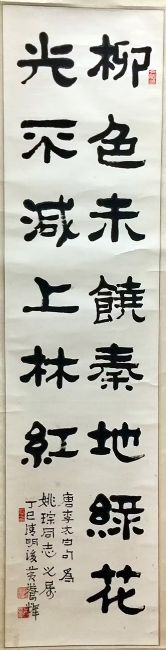 柳色未饒秦地綠花
光不減上林紅
唐李太白句為
姚琮同志之屬
丁巳清明後黃養輝